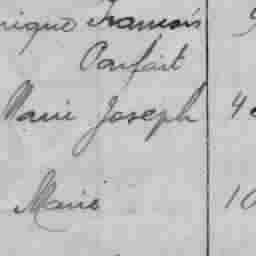 nique Francois 9
Parfait
Marie Joseph 4
Marie 10